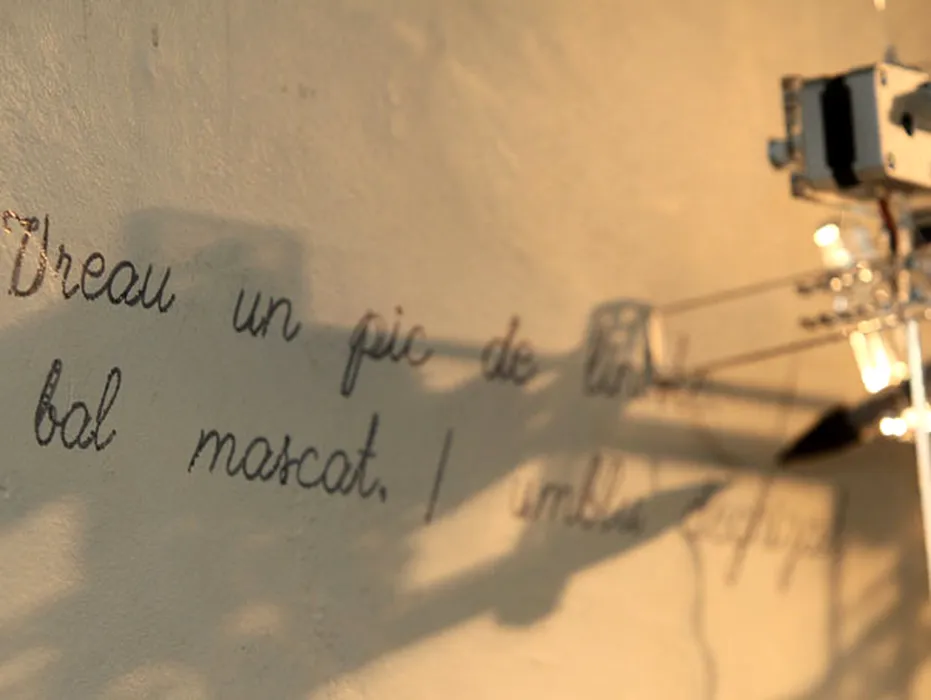 Vreau un pic de
bal mascat. | umblu